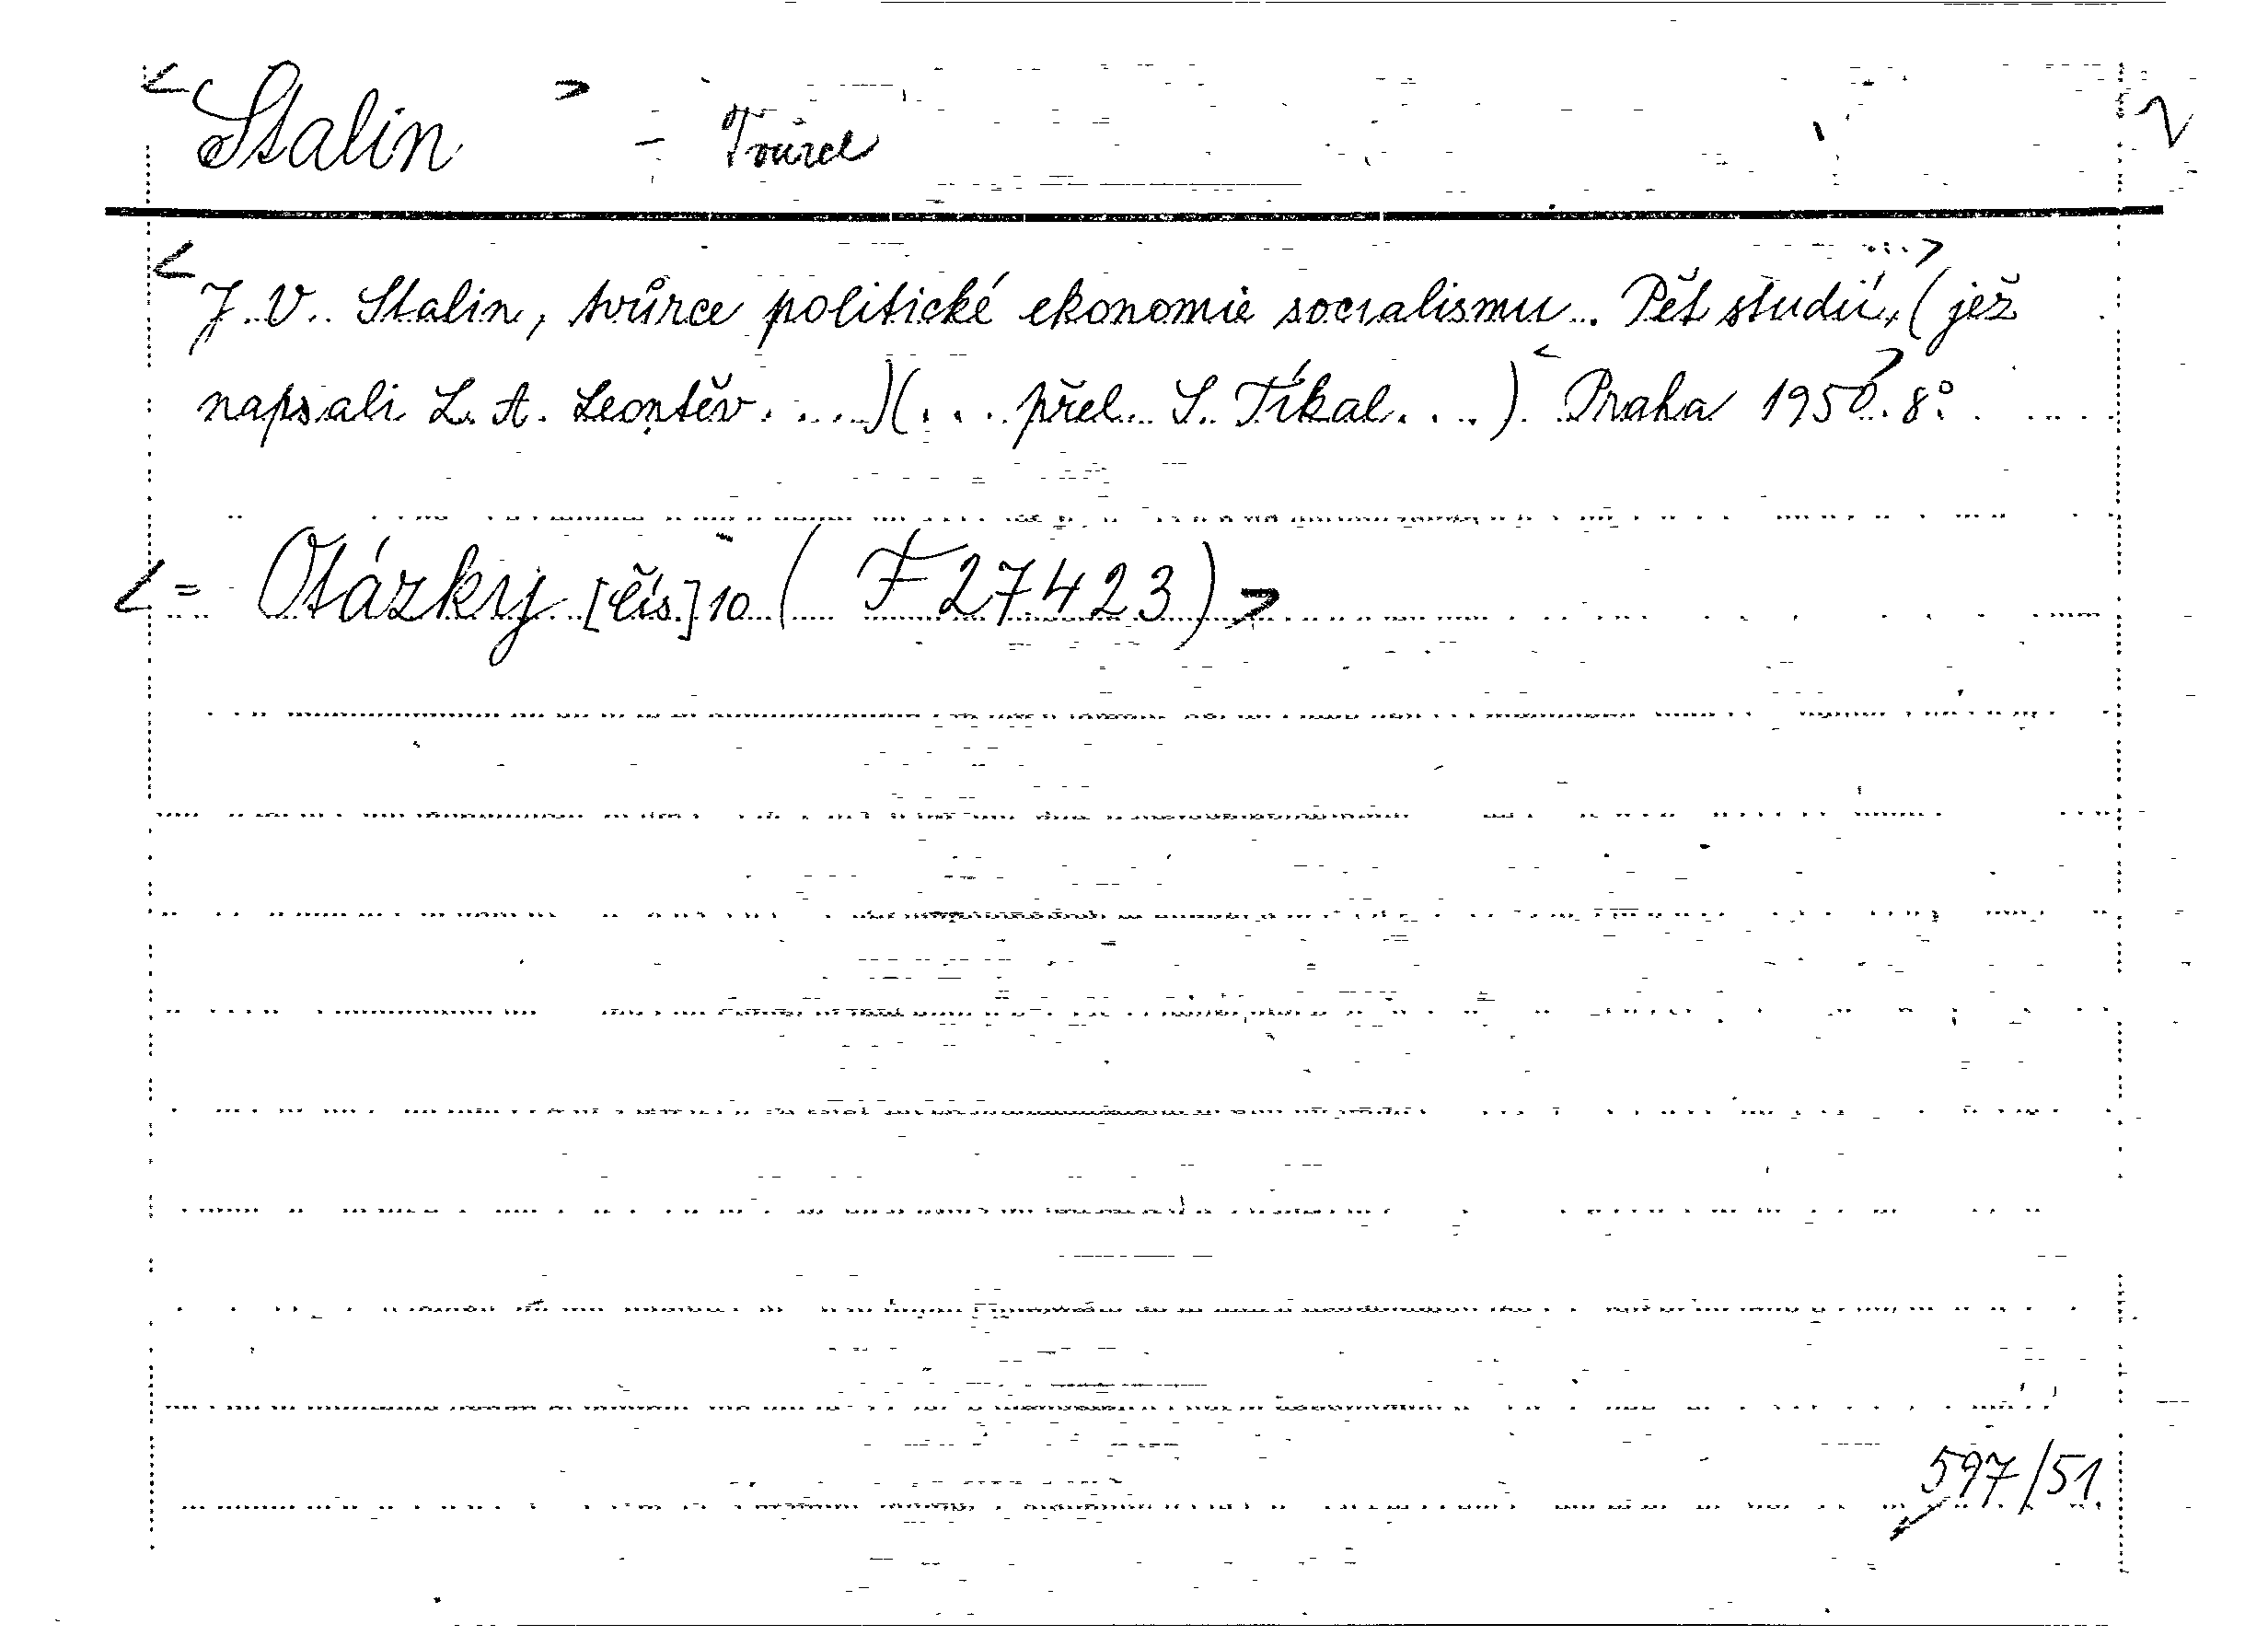 <Stalin> - Tvůrce
<J. V. Stalin, tvůrce politické ekonomie socialismu. Pět studií, ...> (jež
napsali L. A. Leontěv ....)(... přel. S. Tíkal ...) <Praha 1950>. 8°.
<= Otázky [čís.] 10 ( F 27423)>
597/51